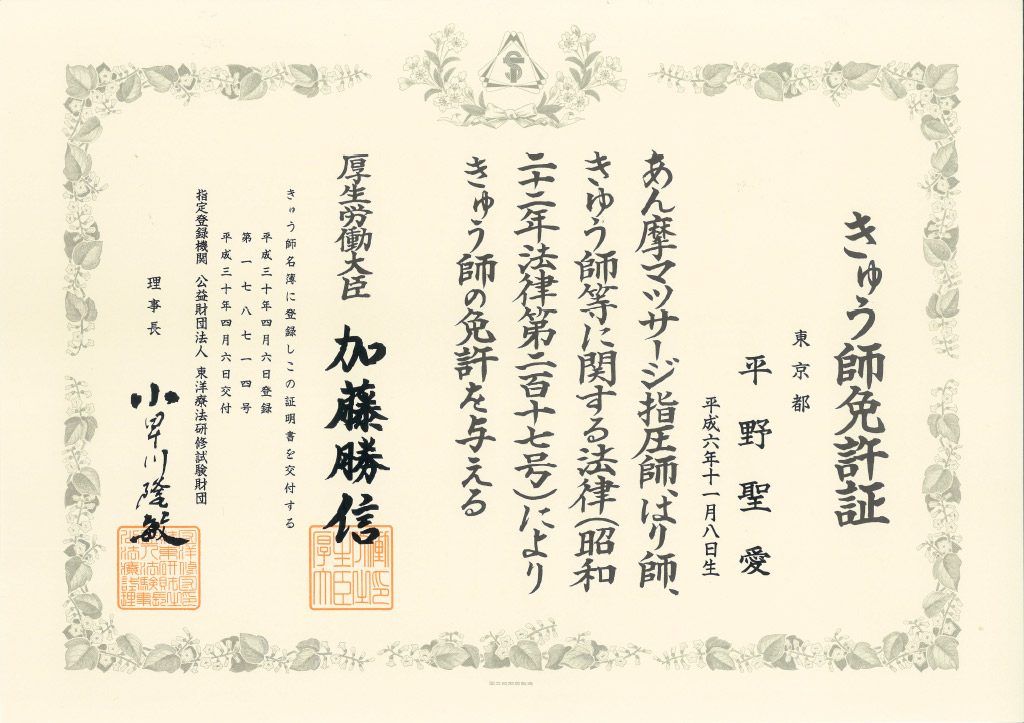 きゅう師免許証
東京都
平野聖愛
平成六年十一月八日生
あん摩マツサージ指圧師、はり師、
きゆう師等に関する法律(昭和
二十二年法律第二百十七号)により
きゅう師の免許を与える
厚生労働大臣 加藤勝信
きゅう師名簿に登録しこの証明書を交付する
平成三十年四月六日登録
第一七八七一四号
平成三十年四月六日交付
指定登録機関 公益財団法人 東洋療法研修試験財団
理事長 小早川隆敏